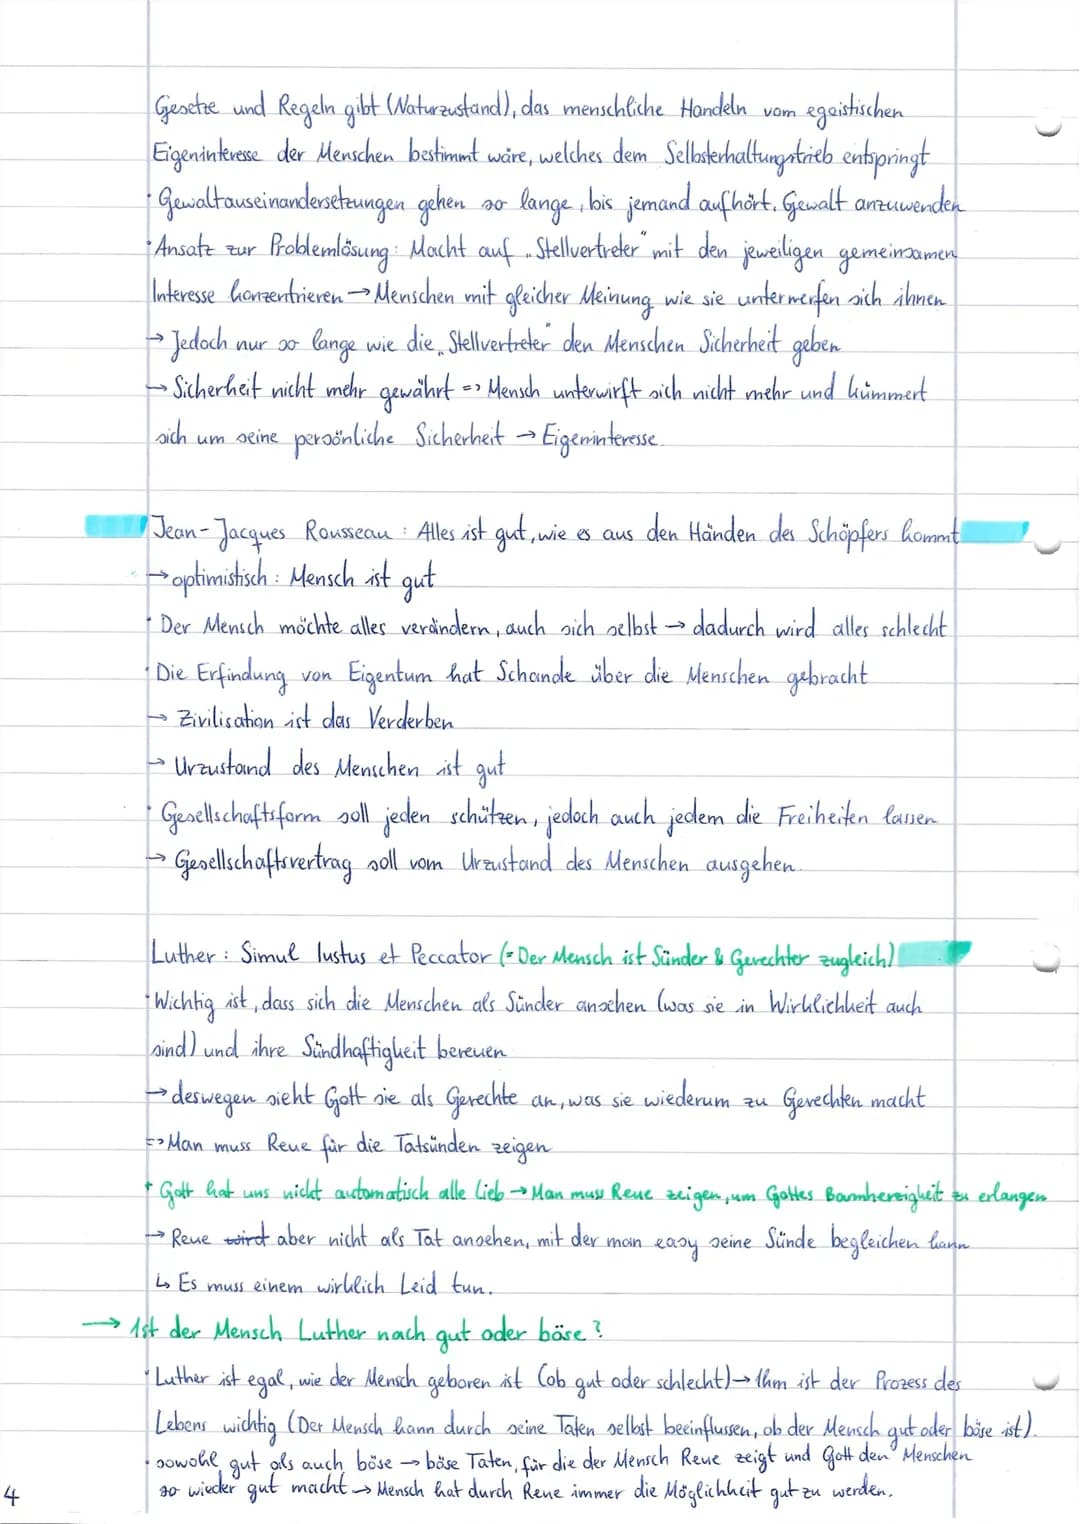 Gesetze und Regeln gibt (Naturzustand), das menschliche Handeln vom egoistischen
Eigeninteresse der Menschen bestimmt wäre, welches dem Selbsterhaltungstrieb entspringt
· Gewaltauseinandersetzungen gehen so lange, bis jemand aufhört, Gewalt anzuwenden
· Ansatz zur Problemlösung: Macht auf „Stellvertreter" mit den jeweiligen gemeinsamen
Interesse konzentrieren → Menschen mit gleicher Meinung wie sie unterwerfen sich ihnen
→ Jedoch nur so lange wie die „Stellvertreter" den Menschen Sicherheit geben
→ Sicherheit nicht mehr gewährt => Mensch unterwirft sich nicht mehr und kümmert
sich um seine persönliche Sicherheit → Eigeninteresse.
Jean-Jacques Rousseau : Alles ist gut, wie es aus den Händen des Schöpfers kommt
→ optimistisch : Mensch ist gut
· Der Mensch möchte alles verändern, auch sich selbst → dadurch wird alles schlecht
· Die Erfindung von Eigentum hat Schande über die Menschen gebracht
→ Zivilisation ist das Verderben
→ Urzustand des Menschen ist gut
· Gesellschaftsform soll jeden schützen, jedoch auch jedem die Freiheiten lassen
→ Gesellschaftsvertrag soll vom Urzustand des Menschen ausgehen.
Luther : Simul Iustus et Peccator (= Der Mensch ist Sünder & Gerechter zugleich)
· Wichtig ist, dass sich die Menschen als Sünder ansehen (was sie in Wirklichkeit auch
sind) und ihre Sündhaftigkeit bereuen
→ deswegen sieht Gott sie als Gerechte an, was sie wiederum zu Gerechten macht
=> Man muss Reue für die Tatsünden zeigen
+ Gott hat uns nicht automatisch alle lieb → Man muss Reue zeigen, um Gottes Barmherzigkeit zu erlangen
→ Reue wird aber nicht als Tat ansehen, mit der man easy seine Sünde begleichen kann
↳ Es muss einem wirklich Leid tun.
→ Ist der Mensch Luther nach gut oder böse?
· Luther ist egal, wie der Mensch geboren ist (ob gut oder schlecht) → Ihm ist der Prozess des
Lebens wichtig (Der Mensch kann durch seine Taten selbst beeinflussen, ob der Mensch gut oder böse ist).
· sowohl gut als auch böse → böse Taten, für die der Mensch Reue zeigt und Gott den Menschen
so wieder gut macht → Mensch hat durch Reue immer die Möglichkeit gut zu werden.
4